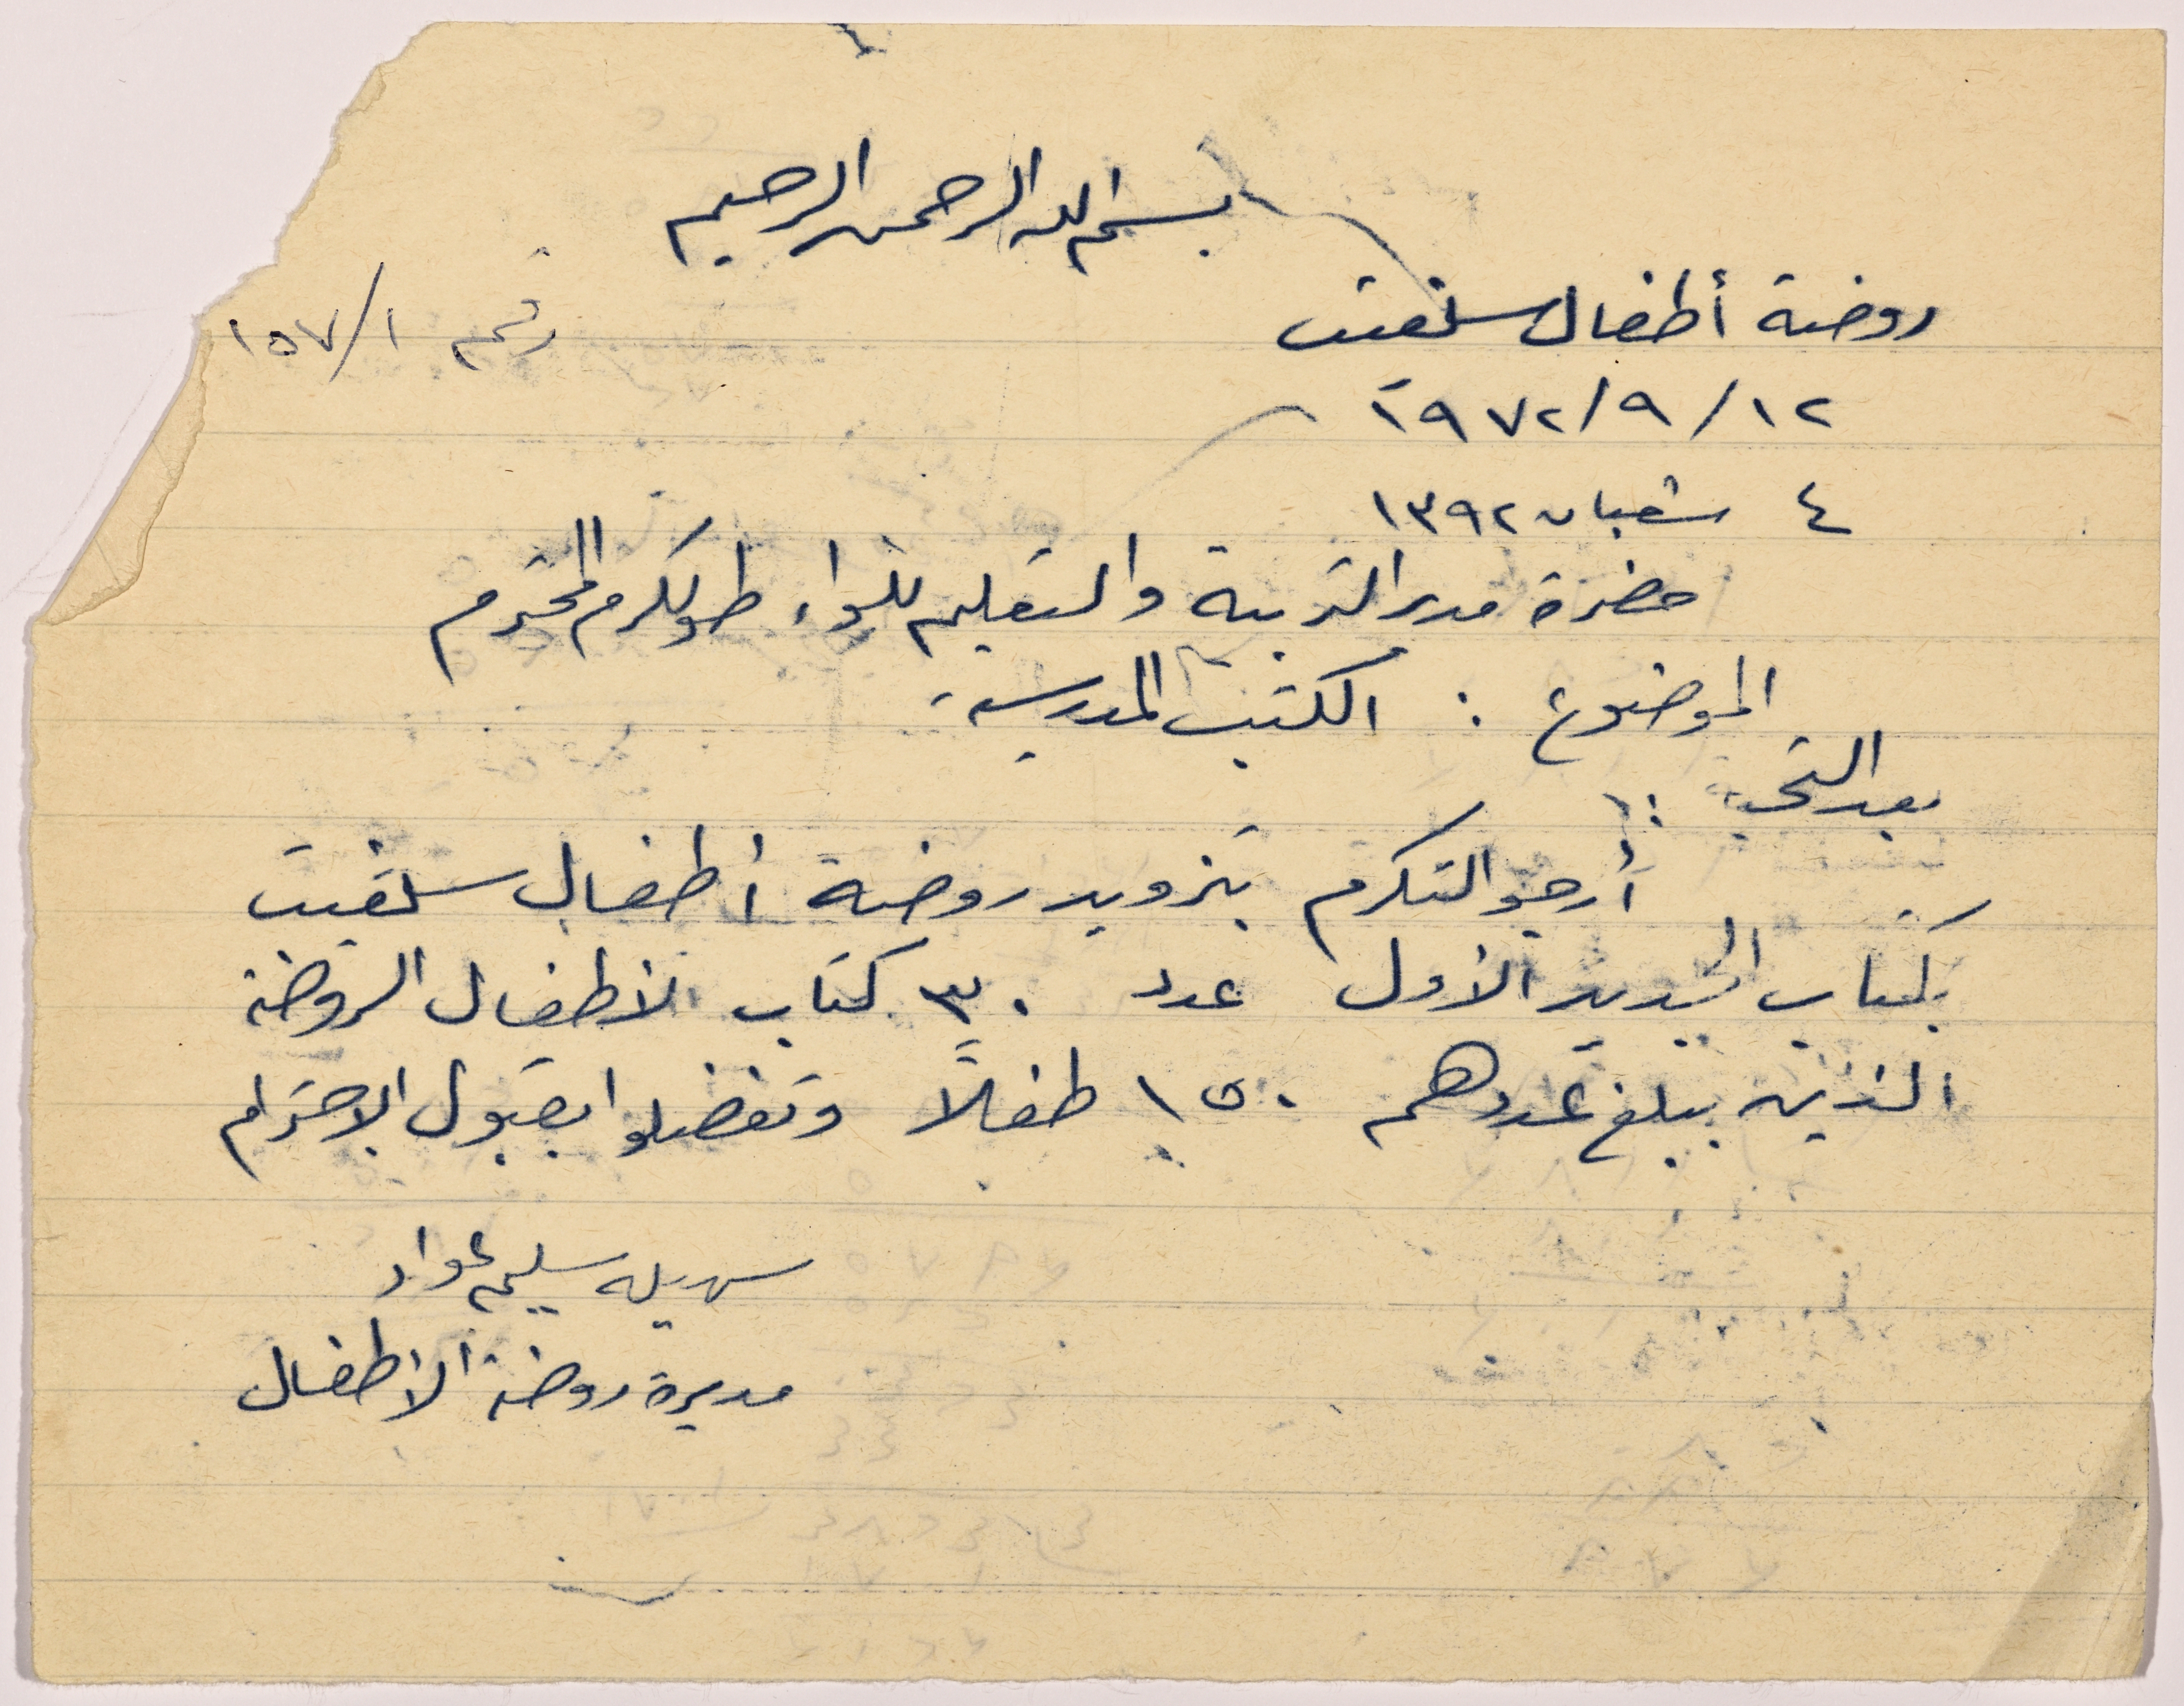 بسم الله الرحمن الرحيم
روضة أطفال سلفيت
رقم ١٥٧/١
١٩٧٢/٩/١٢
٤ شعبان ١٣٩٢
حضرة مدير التربية والتعليم للواء طولكرم المحترم
الموضوع : الكتب المدرسية
بعد التحية :
أرجو التكرم بتزويد روضة أطفال سلفيت
بكتاب الجديد الأول عدد ٣٠ كتاب لأطفال الروضة
الذين يبلغ عددهم ١٥٠ طفلاً وتفضلوا بقبول الاحترام
سهيله سليم عواد
مديرة روضة الأطفال